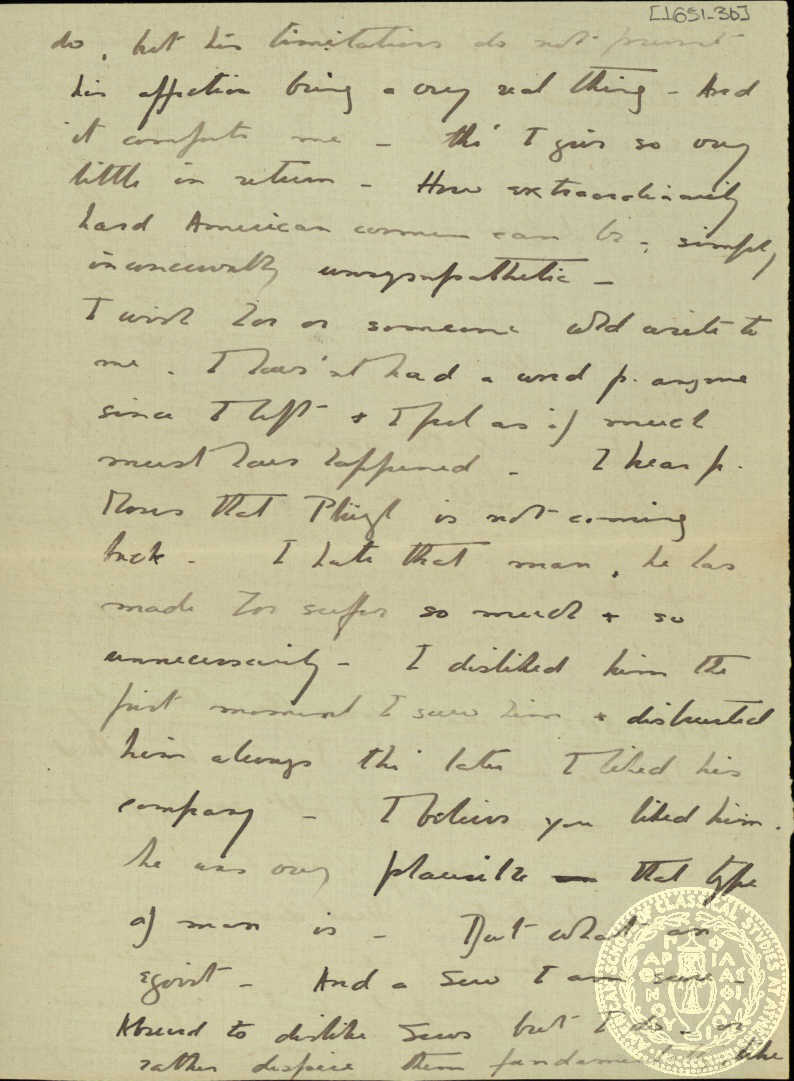 [1651-3b]
do, but his limitations do not prevent
his affection being a very real thing - And
it comforts me - tho' I give so very
little in return - How extraordinarily
hard American women can be, simply
inconceivably unsympathetic -
I wish Zoe or someone wld write to
me. I hav'nt had a word fr. anyone
since I left & I feel as if much
must have happened - I hear fr.
that is not coming
back - I hate that man, he has
made Zoe suffer so much & so
unnecessarily - I disliked him the
first moment I saw him & distrusted
him always tho' later I liked his
company - I believe you liked him.
he was very plausible that type
of man is - But what an
egoist - And a Jew I am sure -
Absurd to dislike Jews but I do - or
rather despise them fundamentally, like